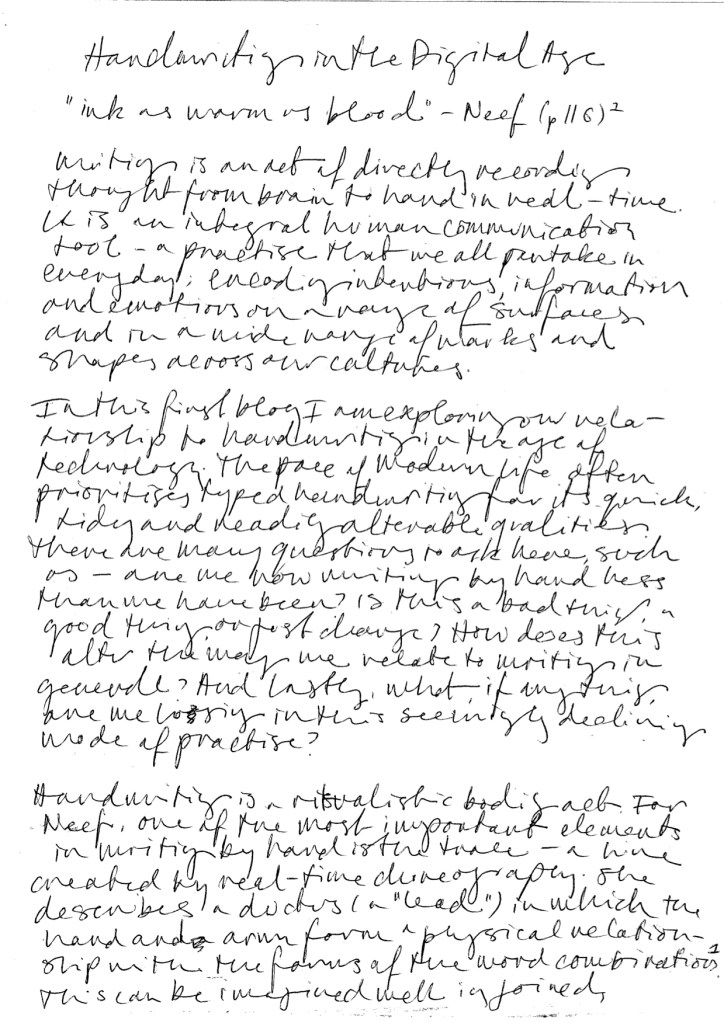 Handwriting in the Digital Age
"ink as warm as blood" - Neef (p116)²
Writing is an act of directly recording
thought from brain to hand in real-time.
It is an integral human communication
tool - a practise that we all partake in
everyday; encoding intentions, information
and emotions on a range of surfaces
and in a wide range of marks and
shapes across our cultures.
In this first blog I am exploring our rela-
tionship to handwriting in the age of
technology. The pace of Modern life often
prioritises typed handwriting for its quick,
tidy and readily alterable qualities.
There are many questions to ask here, such
as - are we now writing by hand less
than we have been? Is this a bad thing, a
good thing, or just change? How does this
alter the way we relate to writing in
general? And lastly, what, if anything,
are we lossing in this seemingly declining
mode of practise?
Handwriting is a ritualistic bodily act. For
Neef, one of the most important elements
in writing by hand is the trace - a line
created by real-time choreography. She
describes a ductus (a "lead") in which the
hand and arm form a physical relation-
ship with the forms of the word combinations¹
This can be imagined well in joined,